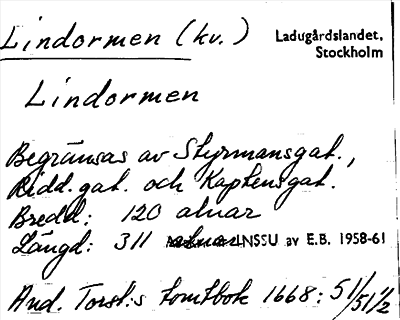 Lindormen (kv.) Ladugårdslandet,
Stockholm
Lindormen
Begränsas av Styrmansgat.,
Ridd.gat. och Kaptensgat.
Bredd: 120 alnar
Längd: 311 alnar INSSU av E.B. 1958-61
And. Torst:s tomtbok 1668: 51/51½